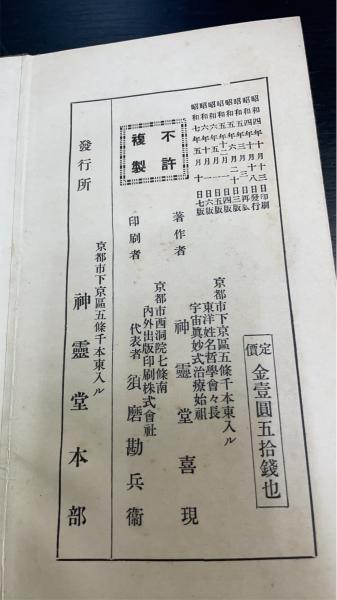 昭和四年十月十三日印刷
昭和四年十月十八日發行
昭和五年三月三日再版
昭和五年六月二十日三版
昭和五年十二月一日四版
昭和六年五月一日五版
昭和六年十月一日六版
昭和七年五月十日七版
不許
複製
定價
金壹圓五拾錢也
京都市下京區五條千本東入ル
東洋姓名哲學會々長
宇宙眞妙式治療始祖
著作者
神靈堂喜現
京都市西洞院七條南
內外出版印刷株式會社
印刷者
代表者 須磨勘兵衞
京都市下京區五條千本東入ル
發行所
神靈堂本部